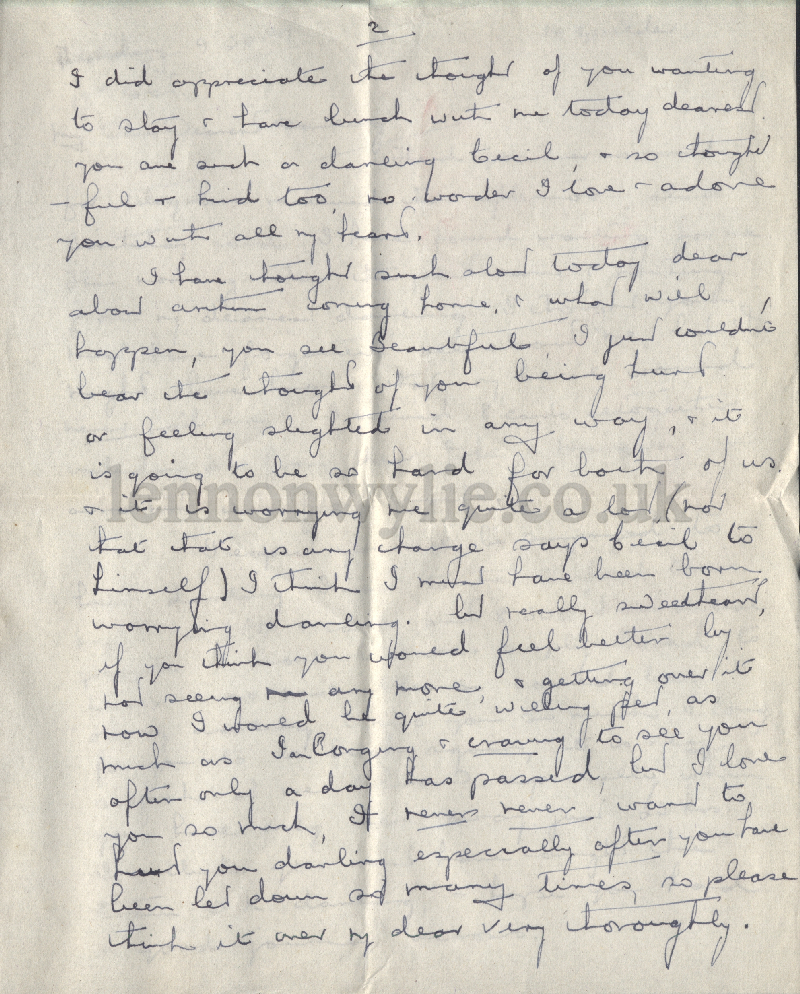 2
I did appreciate the thought of you wanting
to stay & have lunch with me today dearest
you are such a darling Cecil, & so thought
-ful & kind too, no wonder I love & adore
you with all my heart.
I have thought such alot today dear
about coming home, & what will
happen, you see Beautiful I just couldn't
bear the thought of you being hurt
or feeling slighted in any way, & it
is going to be so hard for both of us
& it is worrying me quite a lot (not
that that is any change says Cecil to
himself) I think I must have been born
worrying darling. but really sweetheart,
if you think you would feel better by
not seeing me any more, & getting over it
now I would be quite willing pet, as
much as I am longing & craving to see you
after only a day has passed, but I love
you so much, I never never want to
hurt you darling especially after you have
been let down so many times, so please
think it over my dear very thoroughly.
lennonwylie.co.uk